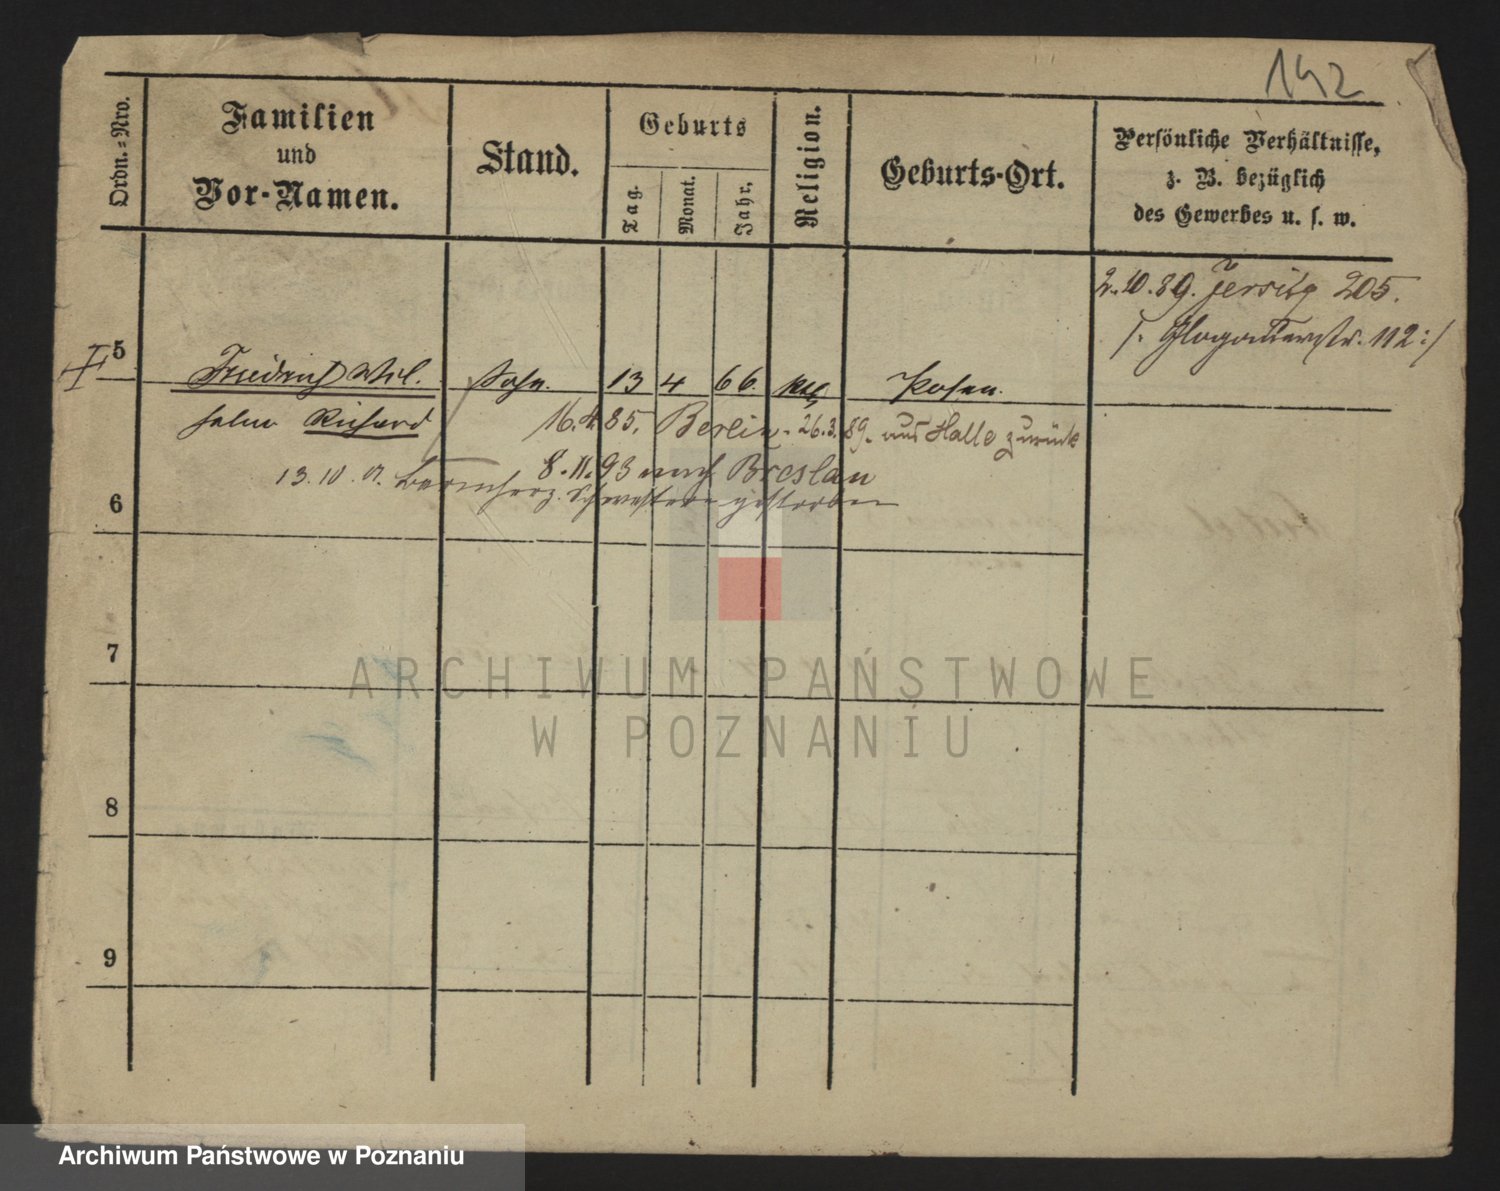 142
Ordn.-Nro.
Familien
und
Vor-Namen.
Stand.
Geburts
Tag.
Monat.
Jahr.
Religion.
Geburts-Ort.
Persönliche Verhältnisse,
z. B. bezüglich
des Gewerbes u. s. w.
2.10.89. Jersitz 205.
/: Glogauerstr. 112 :/
5
Friedrich Wil. Sohn. 13 4 66. kath Posen.
helm Richard 16.4.85. Berlin. 26.3.89. aus Halle zurück
8.11.93 nach Breslau
13.10.01. Barmherz. Schwestern gestorben
6
7
8
9
ARCHIWUM PAŃSTWOWE
W POZNANIU
Archiwum Państwowe w Poznaniu